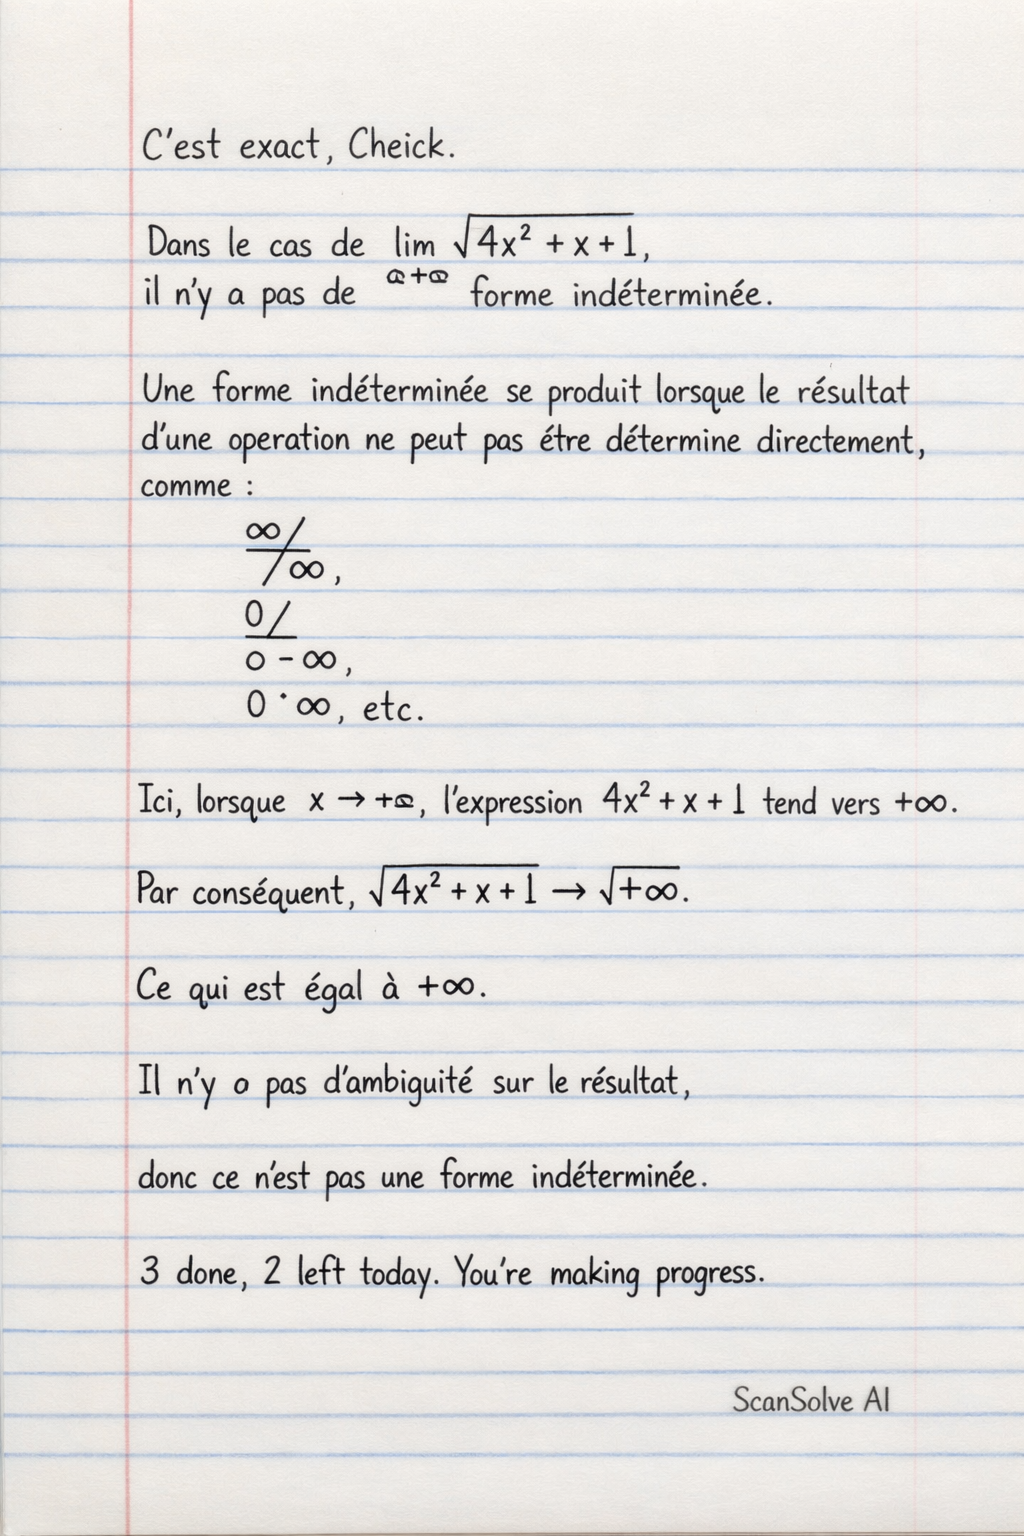 C'est exact, Cheick.
Dans le cas de lim √4x² + x + 1,
il n'y a pas de forme indéterminée.
Une forme indéterminée se produit lorsque le résultat
d'une operation ne peut pas étre détermine directement,
comme :
∞/
/∞,
0/
0 - ∞,
0 · ∞, etc.
Ici, lorsque x → +∞, l'expression 4x² + x + 1 tend vers +∞.
Par conséquent, √4x² + x + 1 → √+∞.
Ce qui est égal à +∞.
Il n'y a pas d'ambiguité sur le résultat,
donc ce n'est pas une forme indéterminée.
3 done, 2 left today. You're making progress.
ScanSolve AI